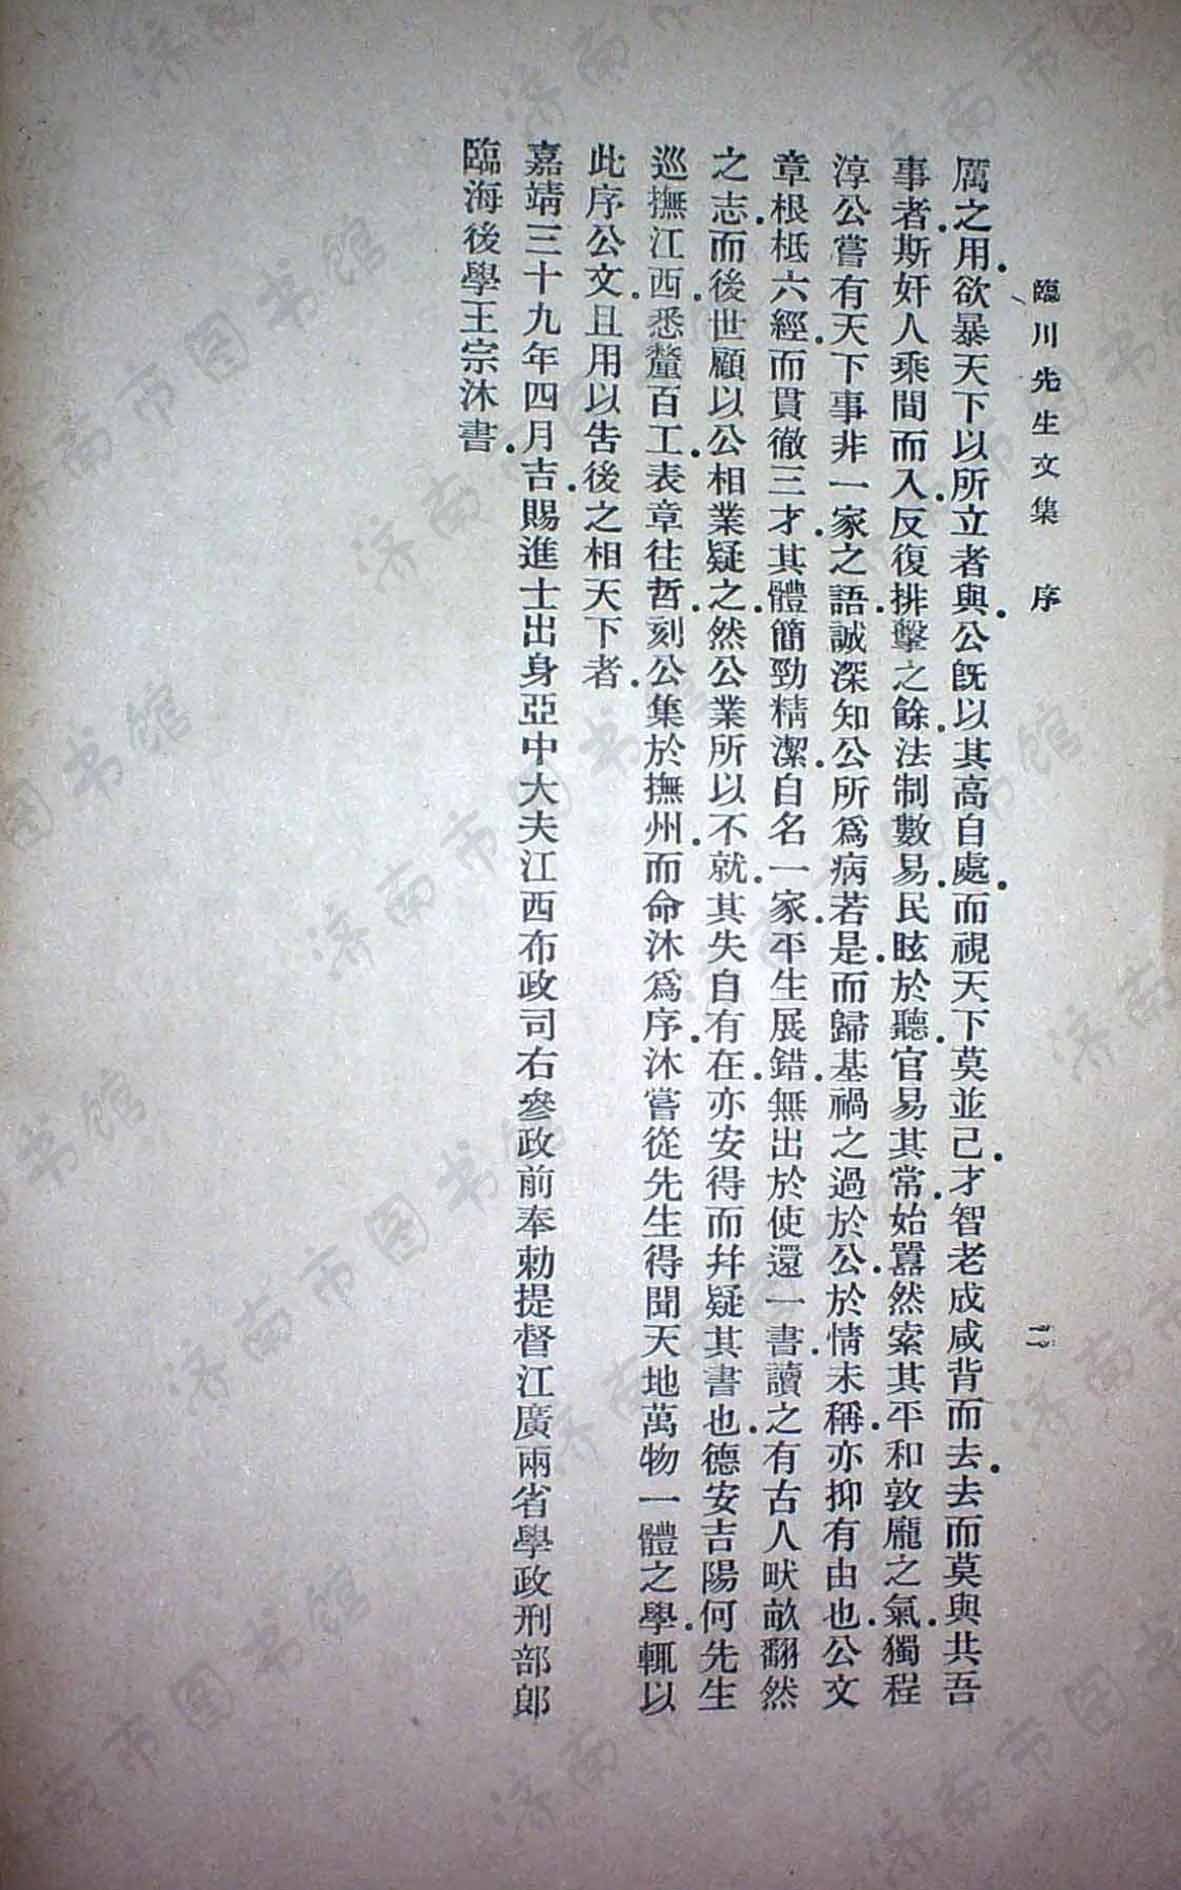 臨川先生文集　序　二
厲之用欲暴天下以所立者與公旣以其高自處而視天下莫並己才智老成咸背而去去而莫與共吾
事者斯奸人乘間而入反復排擊之餘法制數易民眩於聽官易其常始囂然索其平和敦龐之氣獨程
淳公嘗有天下事非一家之語誠深知公所爲病若是而歸基禍之過於公於情未稱亦抑有由也公文
章根柢六經而貫徹三才其體簡勁精潔自名一家平生展錯無出於使還一書讀之有古人畎畝翻然
之志而後世顧以公相業疑之然公業所以不就其失自有在亦安得而幷疑其書也德安吉陽何先生
巡撫江西悉釐百工表章往哲刻公集於撫州而命沐爲序沐嘗從先生得聞天地萬物一體之學輒以
此序公文且用以告後之相天下者
嘉靖三十九年四月吉賜進士出身亞中大夫江西布政司右參政前奉勅提督江廣兩省學政刑部郞
臨海後學王宗沐書
济南市图书馆